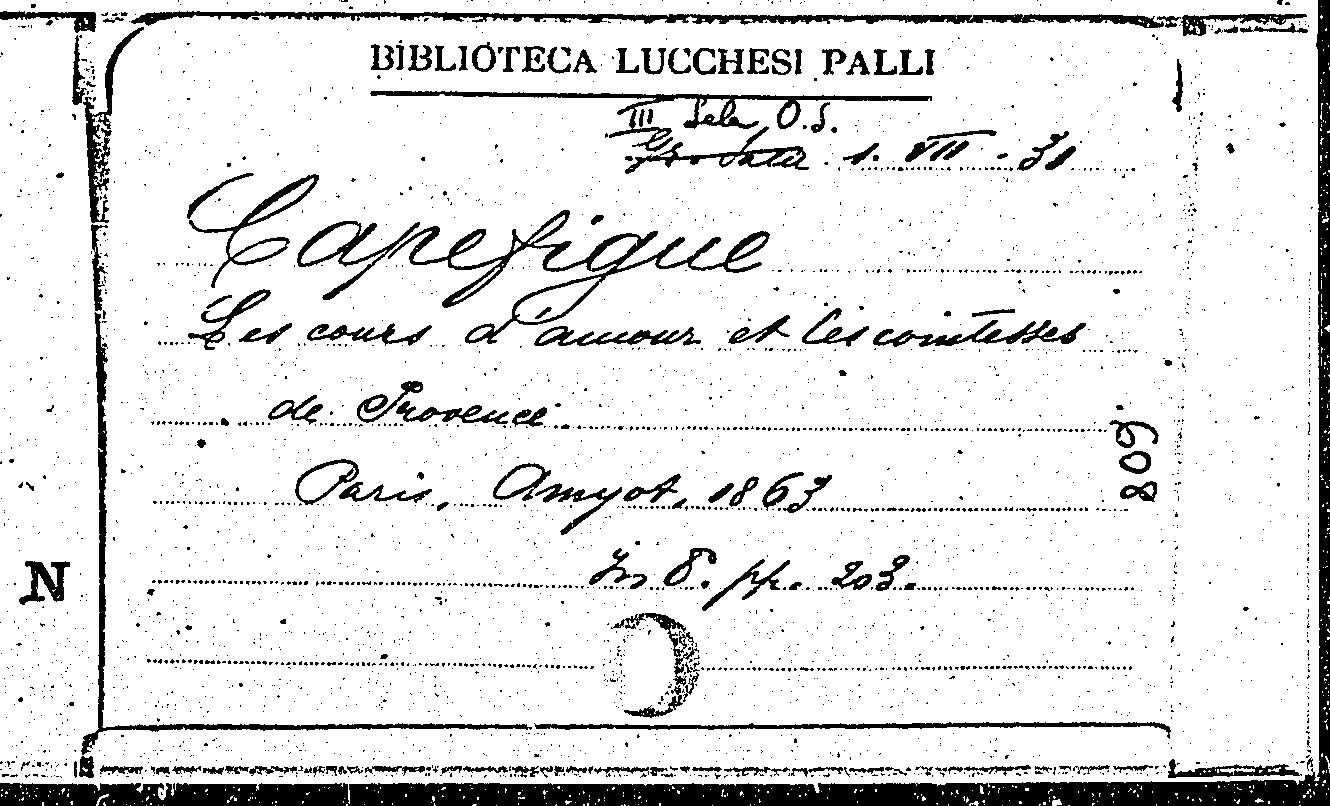 BIBLIOTECA LUCCHESI PALLI
III Sala, O.S.
1. VIII. 31
Capefigue
Les cours d'amour et les comtesses
de Provence.
Paris, Amyot, 1863
In 8. pp. 203.
809
N